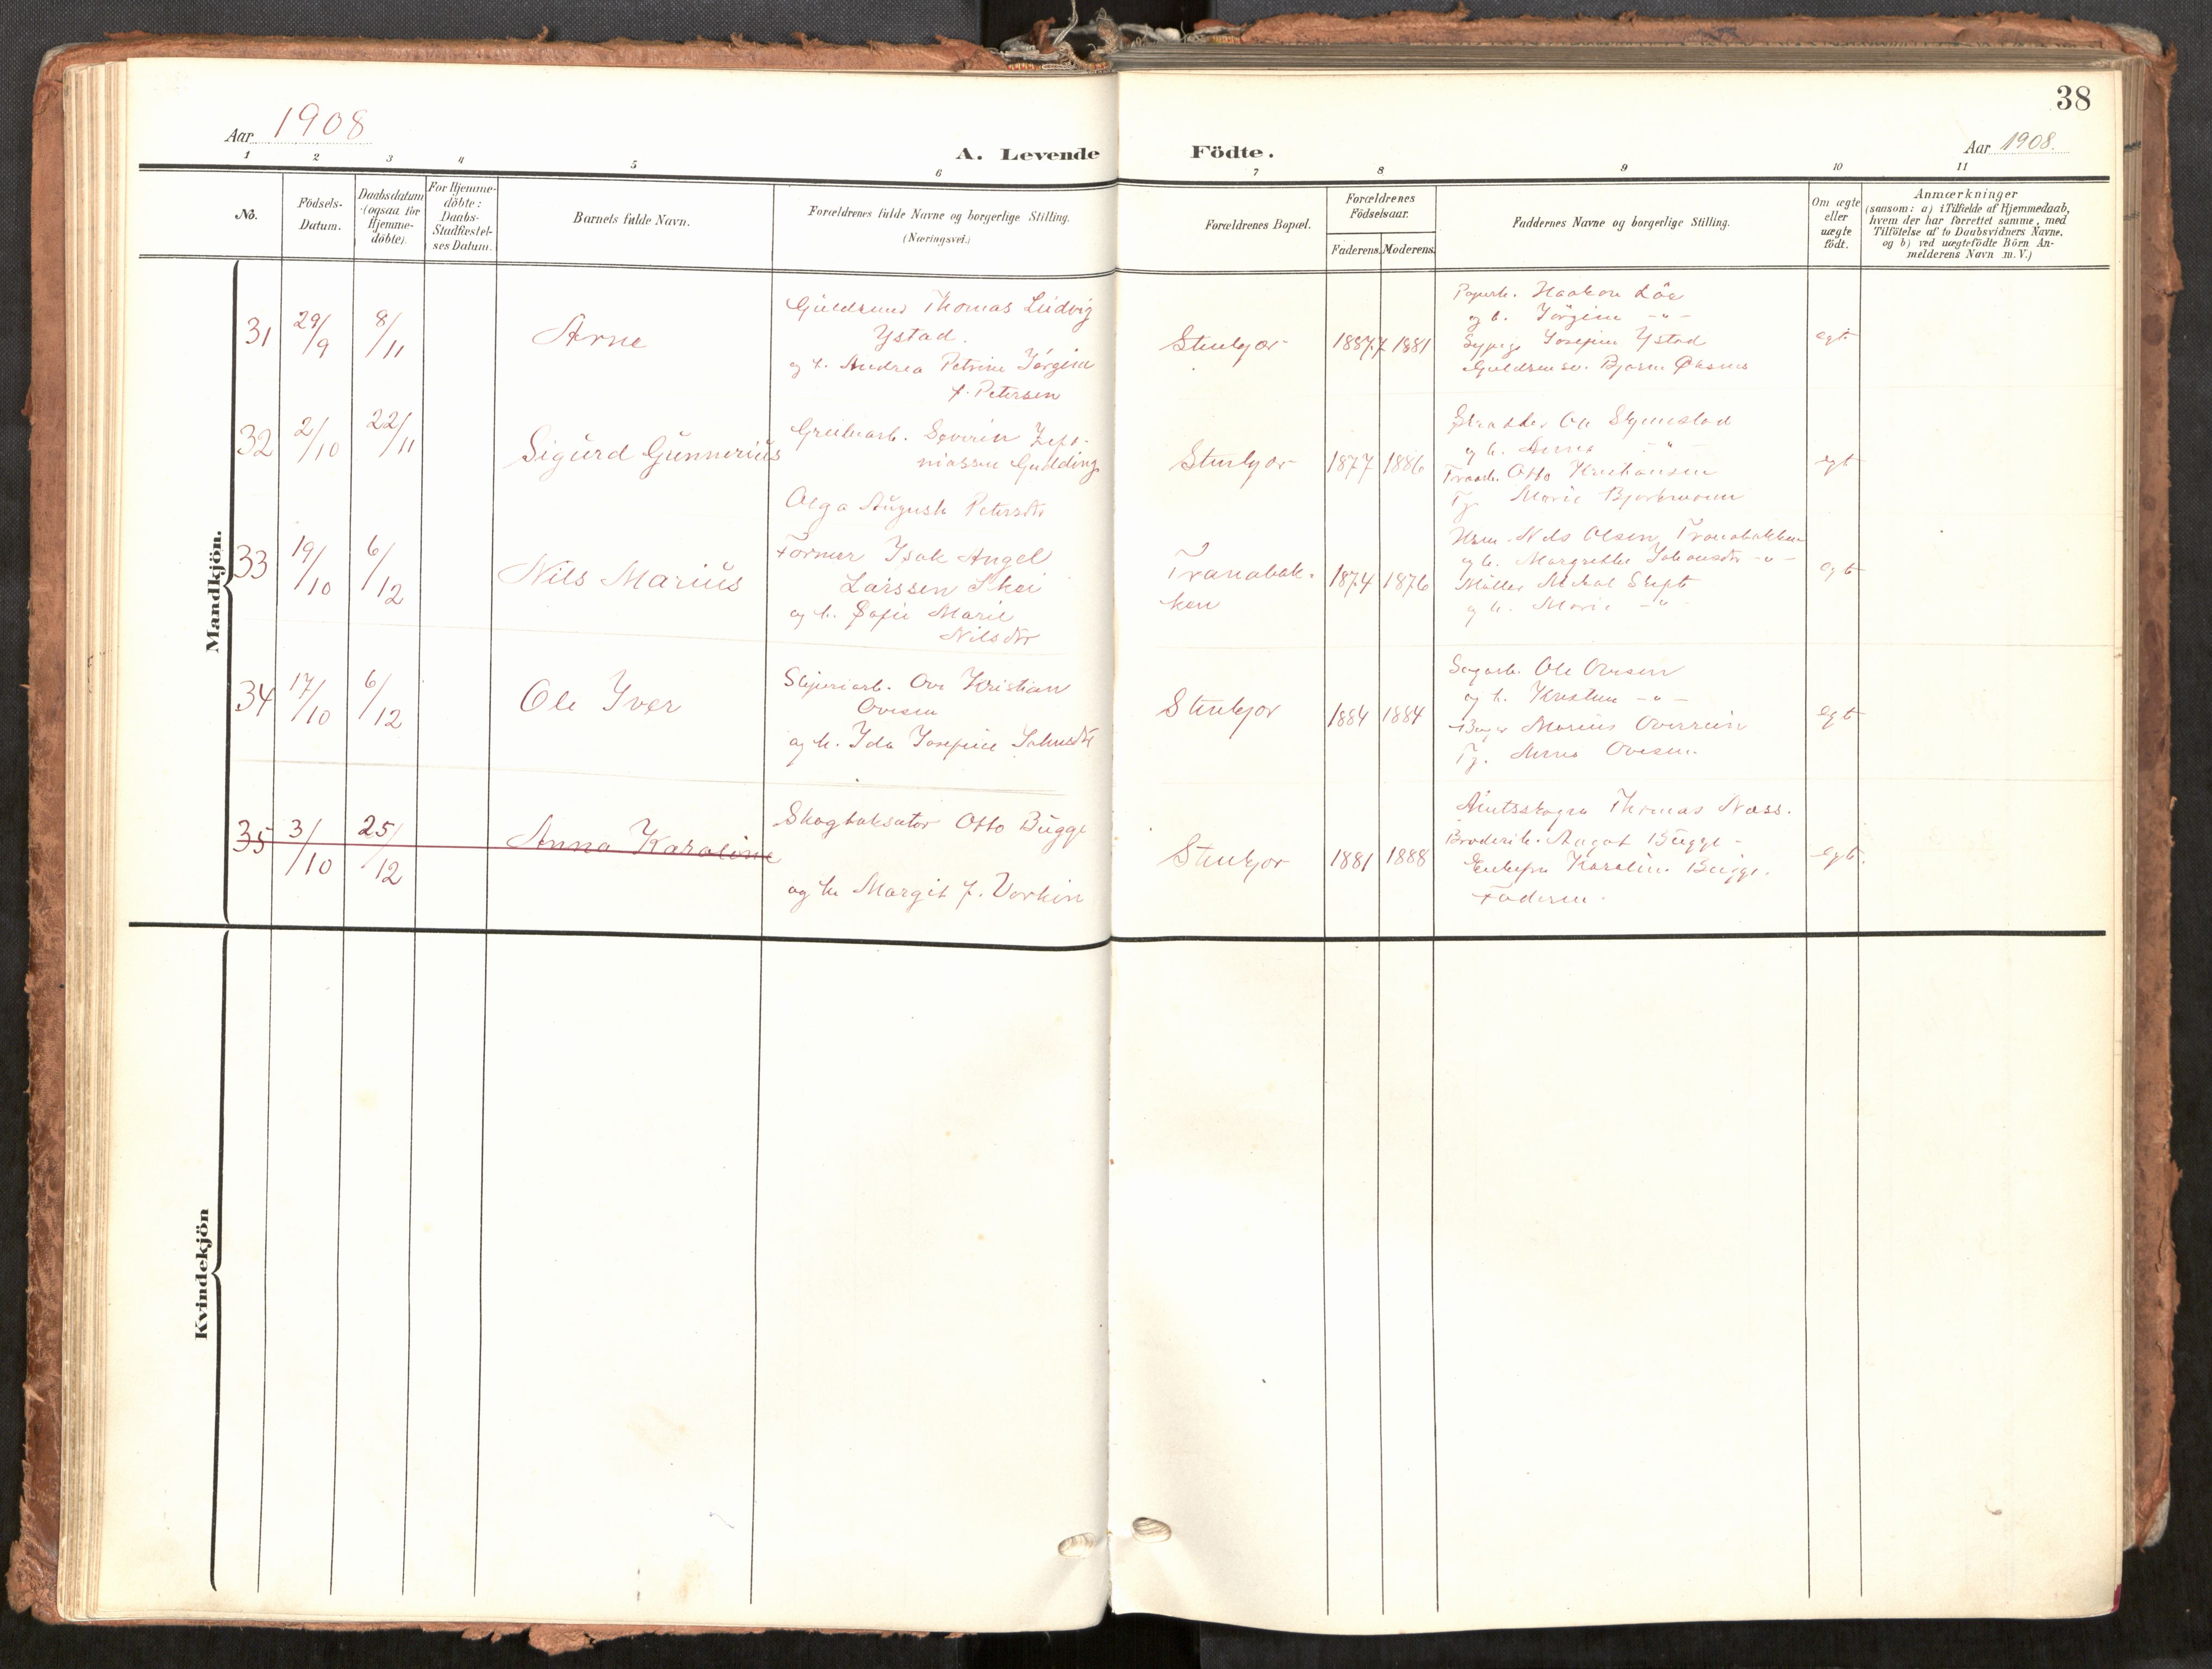 38
Aar 1908
Aar 1908.
A. Levende Födte.
1 2 3 4 5 6 7 8 9 10 11
No.
Födsels-
Datum.
Daabsdatum
(ogsaa for
Hjemme-
döbte).
For Hjemme-
döbte:
Daabs-
Stadfæstel-
ses Datum.
Barnets fulde Navn.
Forældrenes fulde Navne og borgerlige Stilling.
(Næringsvei.)
Forældrenes Bopæl.
Forældrenes
Födselsaar.
Faderens.
Moderens.
Faddernes Navne og borgerlige Stilling.
Om ægte
eller
uægte
födt.
Anmærkninger
(saasom: a) i Tilfælde af Hjemmedaab,
hvem der har forrettet samme, med
Tilföielse af to Daabsvidners Navne,
og b) ved uægtefödte Börn An-
melderens Navn m. V.)
Mandkjön.
31
29/9
8/11
Arne
Guldsmed Thomas Ludvig
Ystad.
og h. Andrea Petrine Jörgine
f. Petersen
Stenkjær
1881
Haakon Löe
og h. Jörgine -"-
Josefine Ystad
Guldsmsv. Bjarne
egt.
32
2/10
22/11
Sigurd Gunnerius
Severin Zefa-
niassen
Olga Augusta Petersdtr
Stenkjær
1877
1886
Ole
og h. Anna -"-
Otto Kristiansen
Marie
egt
33
19/10
6/12
Nils Marius
Former Isak Angel
Larssen Skei
og h. Sofie Marie
Nilsdtr
Tranabak-
ken
1874
1876
Nils Olsen Tranabakken
og h. Margrethe Johansdtr -"-
Möller
og h. Marie -"-
egt
34
17/10
6/12
Ole Iver
Ove Kristian
Ovesen
og h. Ida Josefine Johnsdtr
Stenkjær
1884
1884
Sagarb. Ole Ovesen
og h. -"-
Marius Overrein
Anna Ovesen.
egt
35
3/10
25/12
Anna Karoline
Skogtaksator Otto Bugge
og h. Margit f.
Stenkjær
1881
1888
Thomas Næss.
Aagot Bugge -
Enkefru Karoline Bugge.
Faderen.
egt.
Kvindekjön